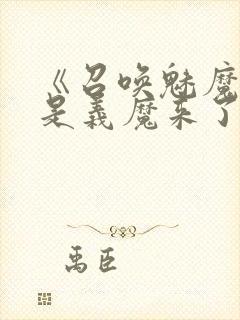 《召唤魅魔
是义魔来了
禹臣